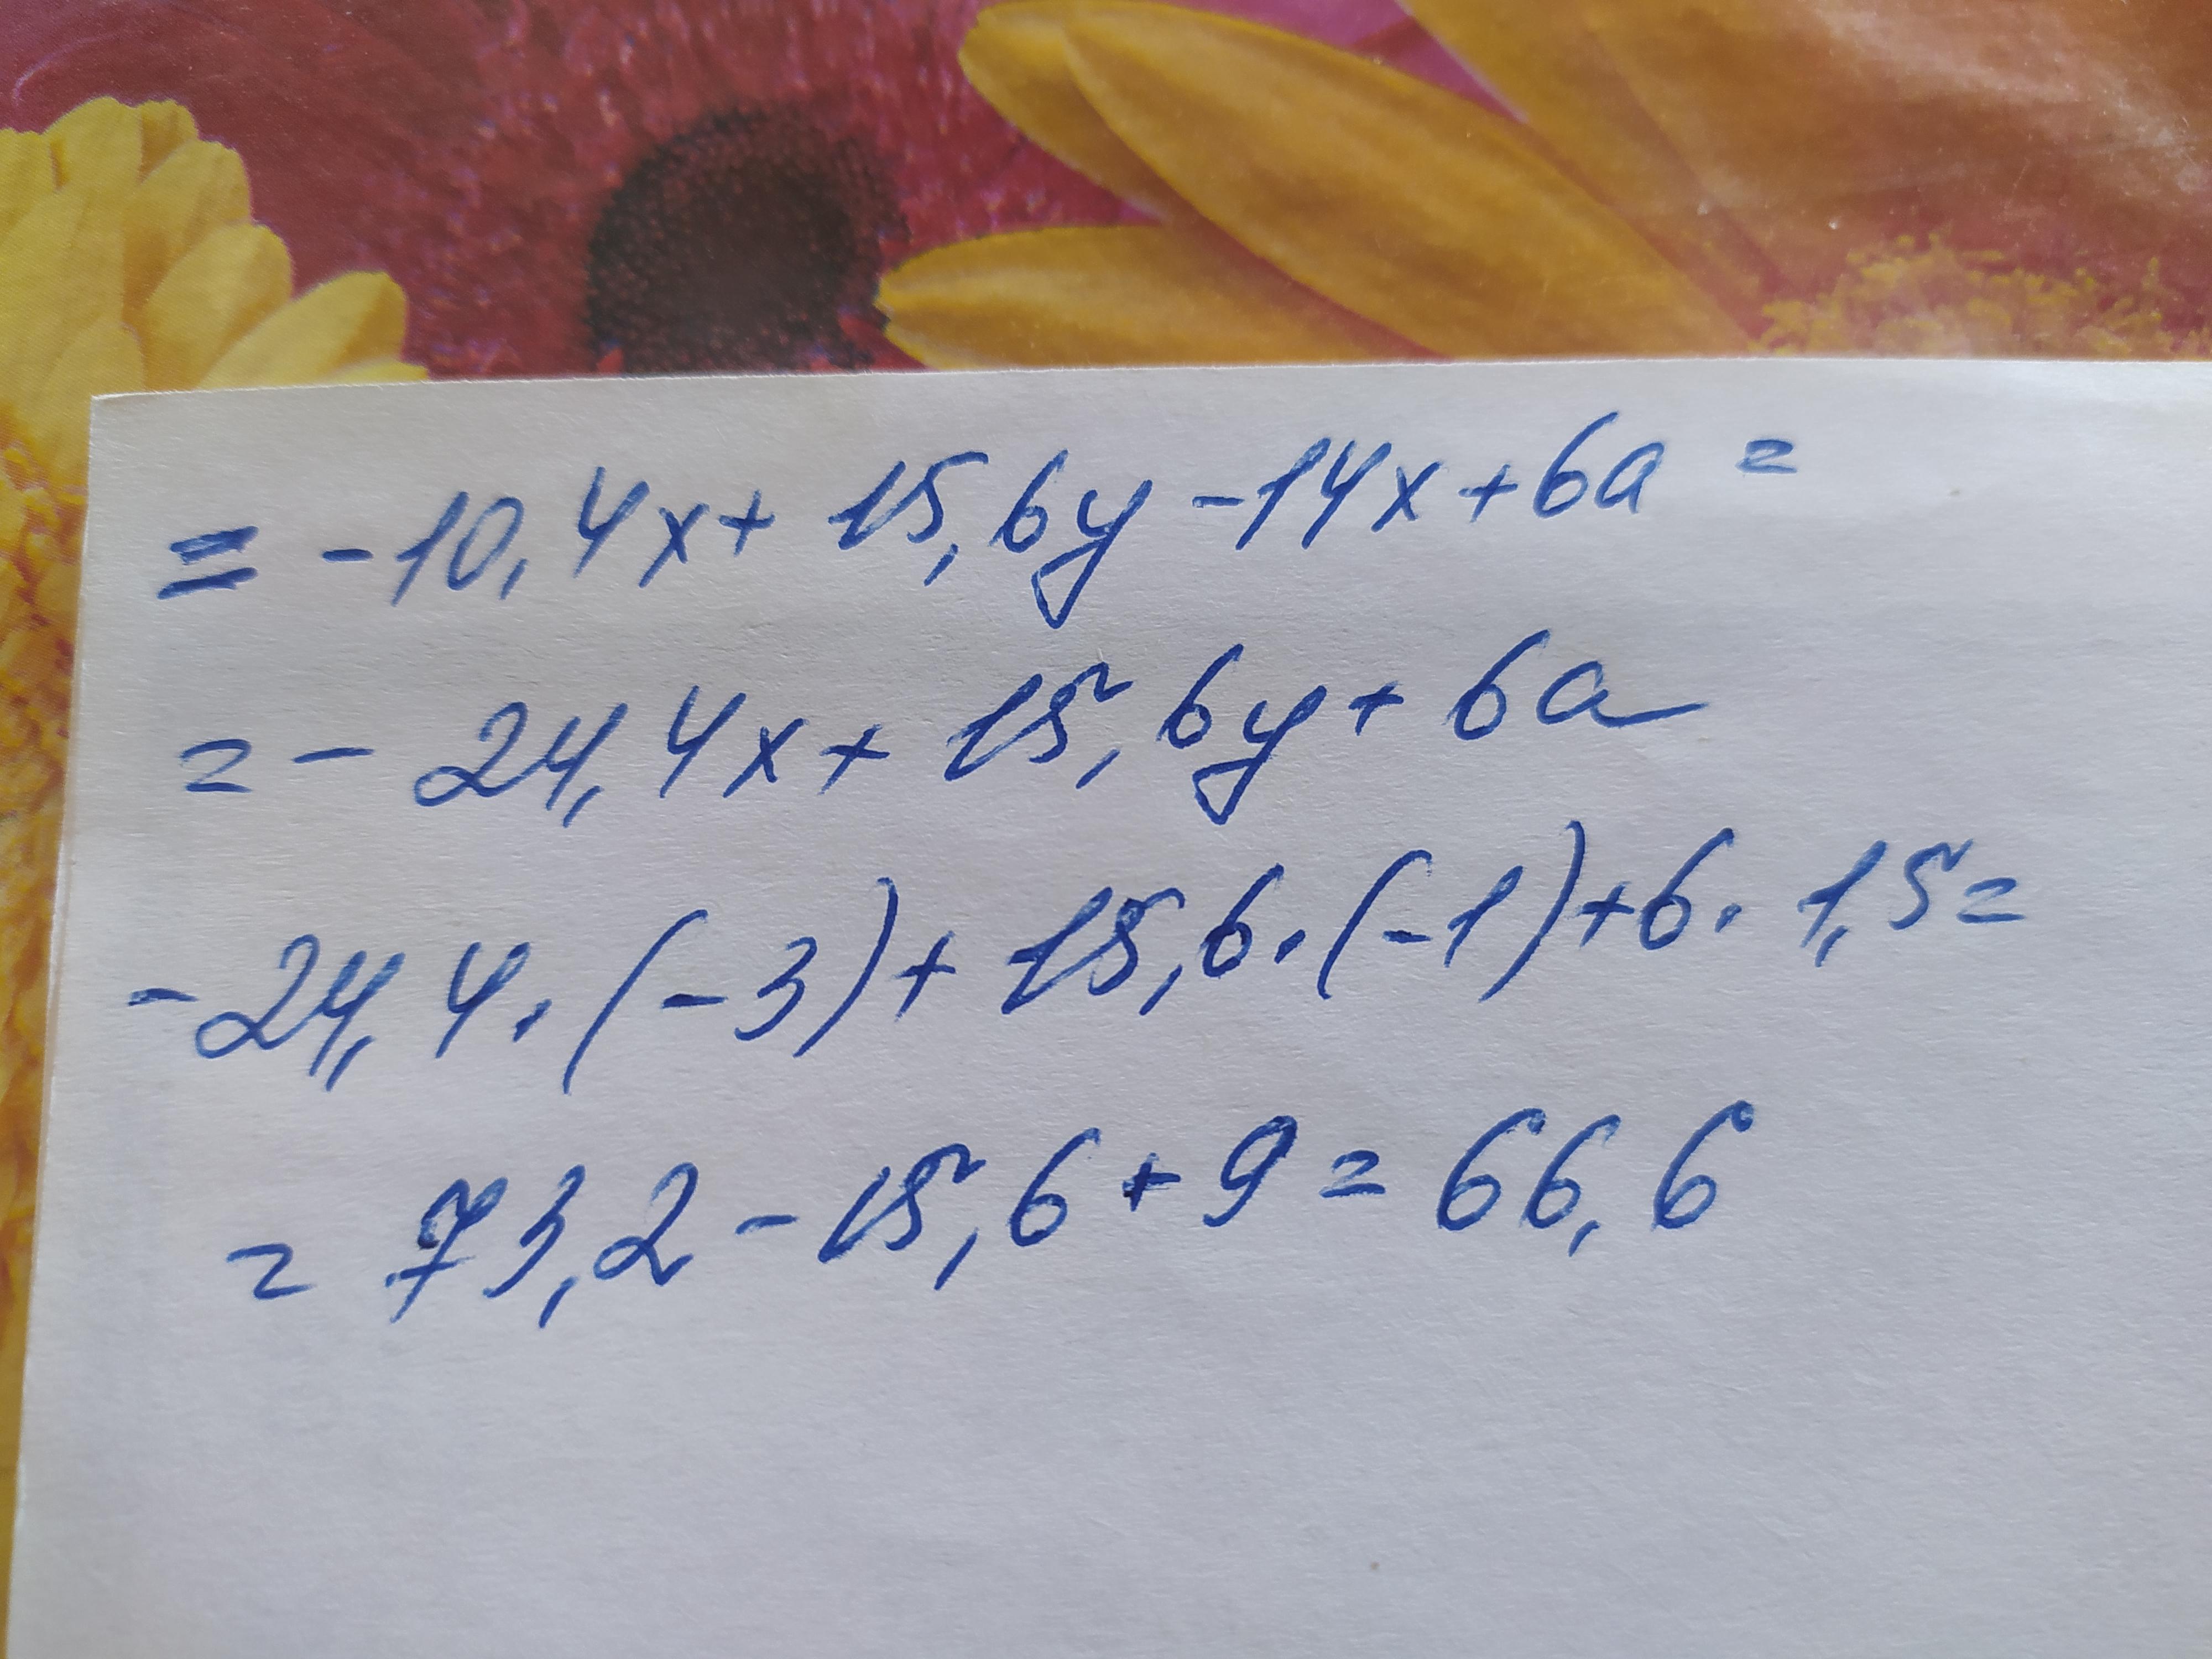 = -10,4x + 15,6y - 14x + 6a =
= - 24,4x + 15,6y + 6a
-24,4 · (-3) + 15,6 · (-1) + 6 · 1,5 =
= 73,2 - 15,6 + 9 = 66,6